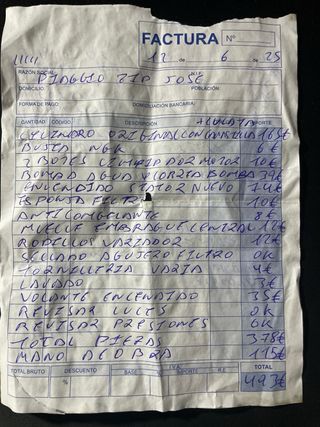 FACTURA Nº
12 de 6 de 25
RAZÓN SOCIAL: N.I.F.
PIAGGIO ZIP JOSE
DOMICILIO: POBLACIÓN:
FORMA DE PAGO: DOMICILIACIÓN BANCARIA:
CANTIDAD CÓDIGO IMPORTE
CYLINDRO ORIGINAL CON 165€
BUJIA NGK 6€
2 BOTES LIMPIADOR MOTOR 10€
BOMBA AGUA Y CORREA BOMBA 39€
ENCENDIDO STATOR NUEVO
ESPONJA FILTRO 10€
ANTICONGELANTE 8€
MUELLE EMBRAGUE CENTRAL 12€
RODILLOS VARIADOR 12€
SELLADO AGUJERO FILTRO OK
TORNILLERIA VARIA 4€
LAVADO 3€
VOLANTE ENCENDIDO 35€
REVISAR LUCES OK
REVISAR PRESIONES OK
TOTAL PIEZAS 378€
MANO DE OBRA 115€
TOTAL BRUTO DESCUENTO % BASE I.V.A. % IMPORTE R.E. TOTAL
493€